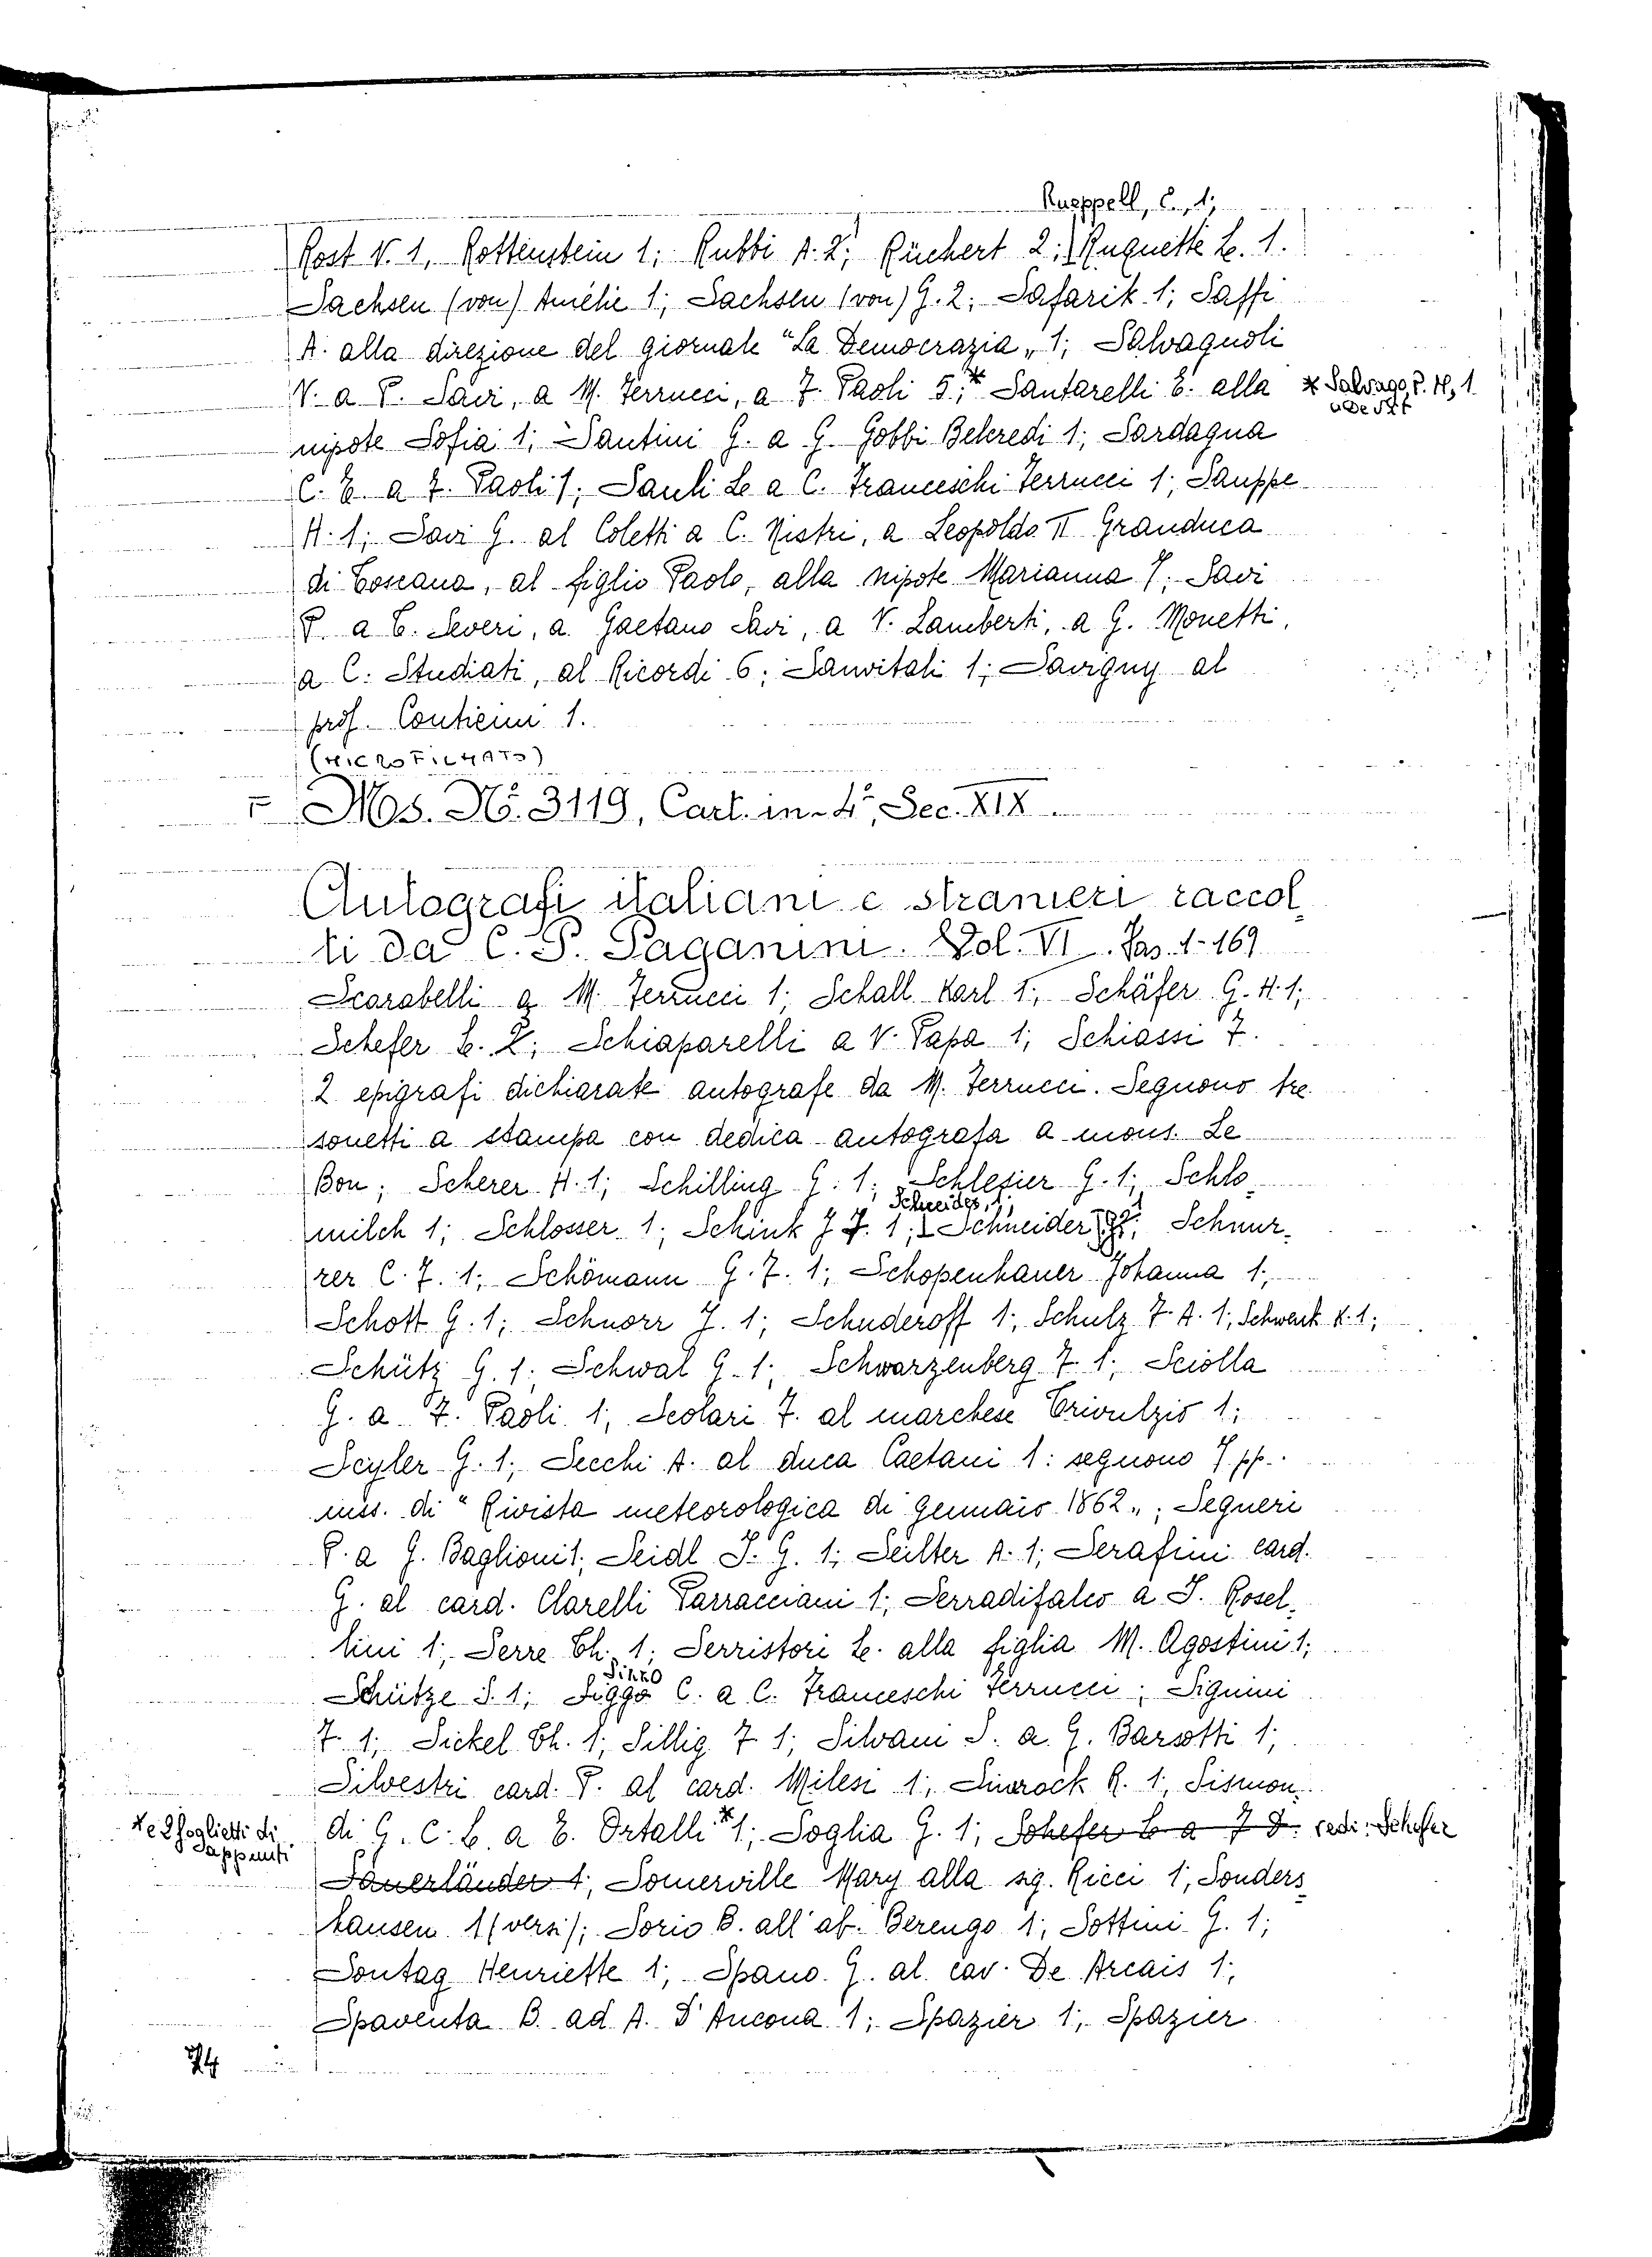 Rueppell, E., 1;
Rost V. 1, Rottenstein 1; Rubbi A. 2; Rüchert 2; Ruquette L. 1.
Sachsen (von) Amélie 1; Sachsen (von) G. 2; Safarik 1; Saffi
A. alla direzione del giornale "La Democrazia„ 1; Salvagnoli
V. a P. Savi, a M. Ferrucci, a F. Paoli 5;* Santarelli E. alla * Salvago, P. H, 1
nipote Sofia 1; Santini G. a G. Gobbi Belcredi 1; Sardagna
C. E. a F. Paoli 1; Sauli L. a C. Franceschi Ferrucci 1; Sauppe
H. 1; Savi G. al Coletti a C. Nistri, a Leopoldo II Granduca
di Toscana, al figlio Paolo, alla nipote Marianna 7; Savi
P. a T. Severi, a Gaetano Savi, a V. Lamberti, a G. Monetti,
a C. Studiati, al Ricordi 6; Sanvitali 1; Savigny al
prof. Conticini 1.
(MICROFILMATO)
Mos. No. 3119, Cart. in-4°, Sec. XIX.
Autografi italiani e stranieri raccol
ti da C. P. Paganini. Vol. VI. Fas. 1-169
Scarabelli a M. Ferrucci 1; Schall Karl 1; Schäfer G. H. 1;
Schefer L. 2; Schiaparelli a V. Papa 1; Schiassi F.
2 epigrafi dichiarate autografe da M. Ferrucci. Seguono tre
sonetti a stampa con dedica autografa a mons. Le
Bon; Scherer H. 1; Schilling G. 1; Schlesier G. 1; Schlo
Schneider, 1;
milch 1; Schlosser 1; Schink J. F. 1; Schneider; Schnur
rer C. F. 1; Schömann G. F. 1; Schopenhauer Johanna 1;
Schott G. 1; Schnorr J. 1; Schuderoff 1; Schulz F. A. 1; Schwenk K. 1;
Schütz G. 1; Schwal G. 1; Schwarzenberg F. 1; Sciolla
G. a F. Paoli 1; Scolari F. al marchese Trivulzio 1;
Scyler G. 1; Secchi A. al duca Caetani 1: seguono 7 pp.
mss. di "Rivista meteorologica di Gennaio 1862„; Segneri
P. a G. Baglioni 1; Seidl J. G. 1; Seilter A. 1; Serafini card.
G. al card. Clarelli Parracciani 1; Serradifalco a I. Rosel
lini 1; Serre Th. 1; Serristori L. alla figlia M. Agostini 1;
Sikko
Schütze S. 1; Siggo C. a C. Franceschi Ferrucci; Signini
F. 1; Sickel Th. 1; Sillig F. 1; Silvani S. a G. Barsotti 1;
Silvestri card. P. al card. Milesi 1; Simrock R. 1, Sismon
* e 2 foglietti di
di G. C. L. a E. Ortalli *1; Soglia G. 1; Schefer L. a J. D. vedi: Schefer
Sappunti
Sauerländer 1; Somerville Mary alla sig. Ricci 1; Sonders
hausen 1 (versi); Sorio B. all'ab. Berengo 1; Sottini G. 1;
Sontag Henriette 1; Spano G. al cav. De Arcais 1;
Spaventa B. ad A. D'Ancona 1; Spazier 1; Spazier
74